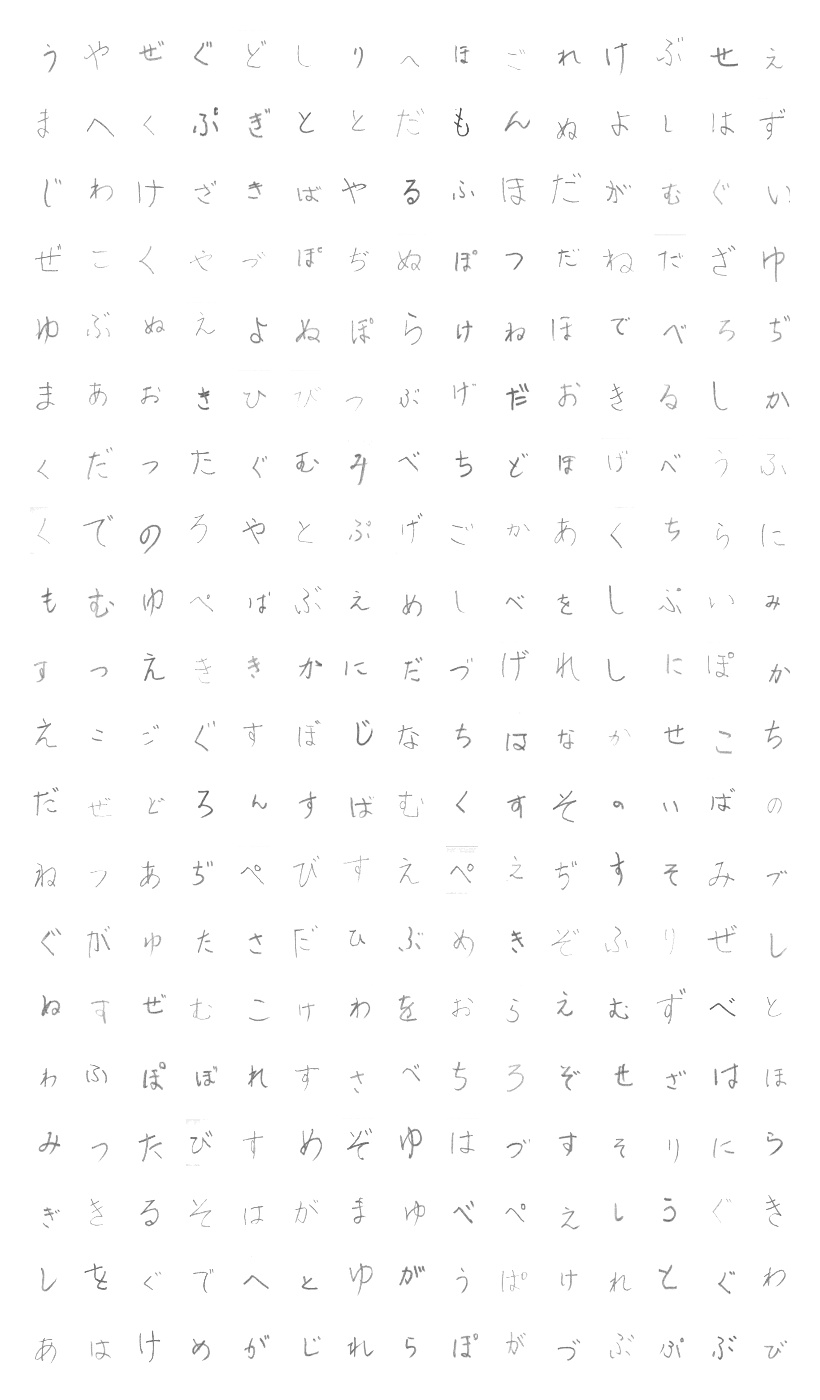 うやぜぐどしりへほごれけぶせえ
まへくぷぎととだもんぬよしはず
じわけざきばやるふほだがむぐい
ぜこくやづぽぢぬぽつだねだざゆ
ゆぶぬえよぬぽらけねほでべろぢ
まあおさひびつぶげだおきるしか
くだったぐむみべちどほげべうふ
くでのろやとぷげごかあくちらに
もむゆぺばぶえめしべをしぷいみ
すつえききかにだづげれしにぽか
えこごぐすぼじなちはなかせこち
だぜどろんすばむくすそのいばの
ねつあぢぺびすえぺえぢすそみづ
ぐがゆたさだひぶめきぞふりぜし
ぬすぜむこけわをおらえむずべと
わふぽぼれすさべちろぞせざはほ
みつたびすめぞゆはづすそりにら
ぎきるそはがまゆべぺえしうぐき
しをぐでへとゆがうぱけれとぐわ
あはけめがじれらぽがづぶぷぶび